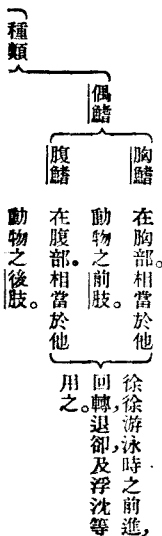 種類
偶鰭
胸鰭
在胸部。相當於他
動物之前肢。
腹鰭
在腹部。相當於他
動物之後肢。
徐徐游泳時之前進,
回轉,退卻及浮沈等
用之。